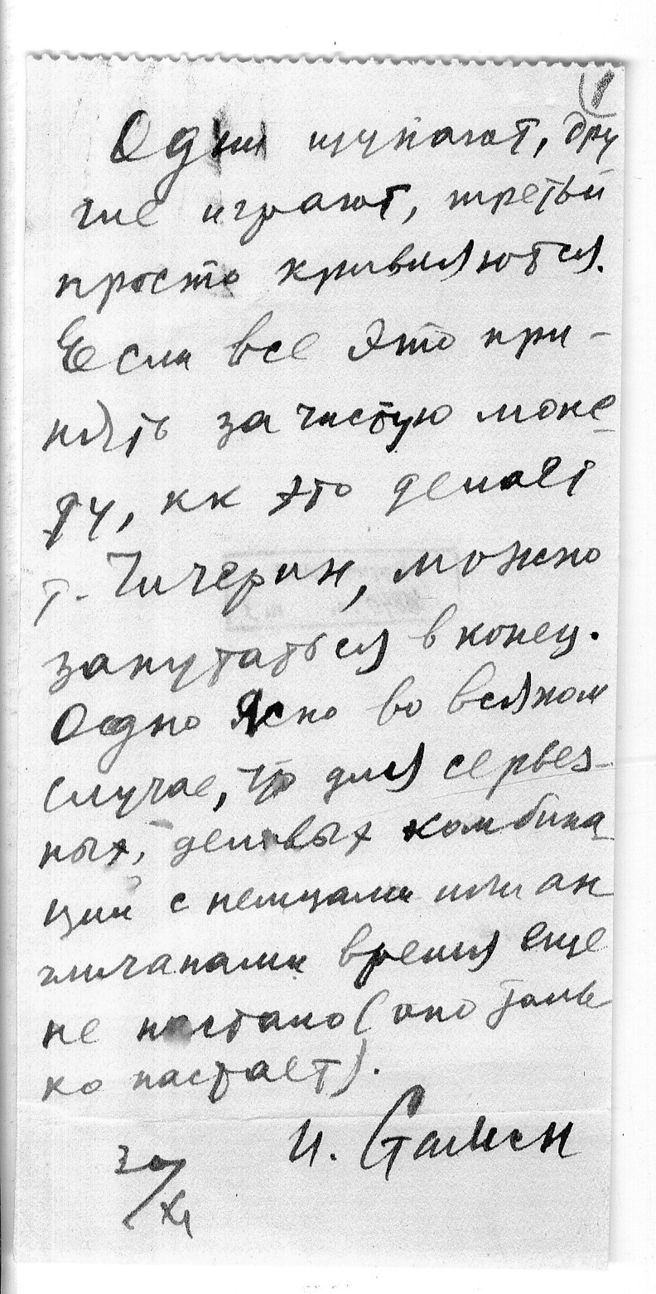 1
Одни щупают, дру
гие играют, третьи
просто кривляются.
Если все это при-
нять за чистую моне
ту, кк это делает
т. Чичерин, можно
запутаться в конец.
Одно ясно во всяком
случае, что для серьез-
ных, деловых комбина
ций с немцами или ан
гличанами время еще
не настало (оно толь
ко настает).
И. Сталин
30/XI